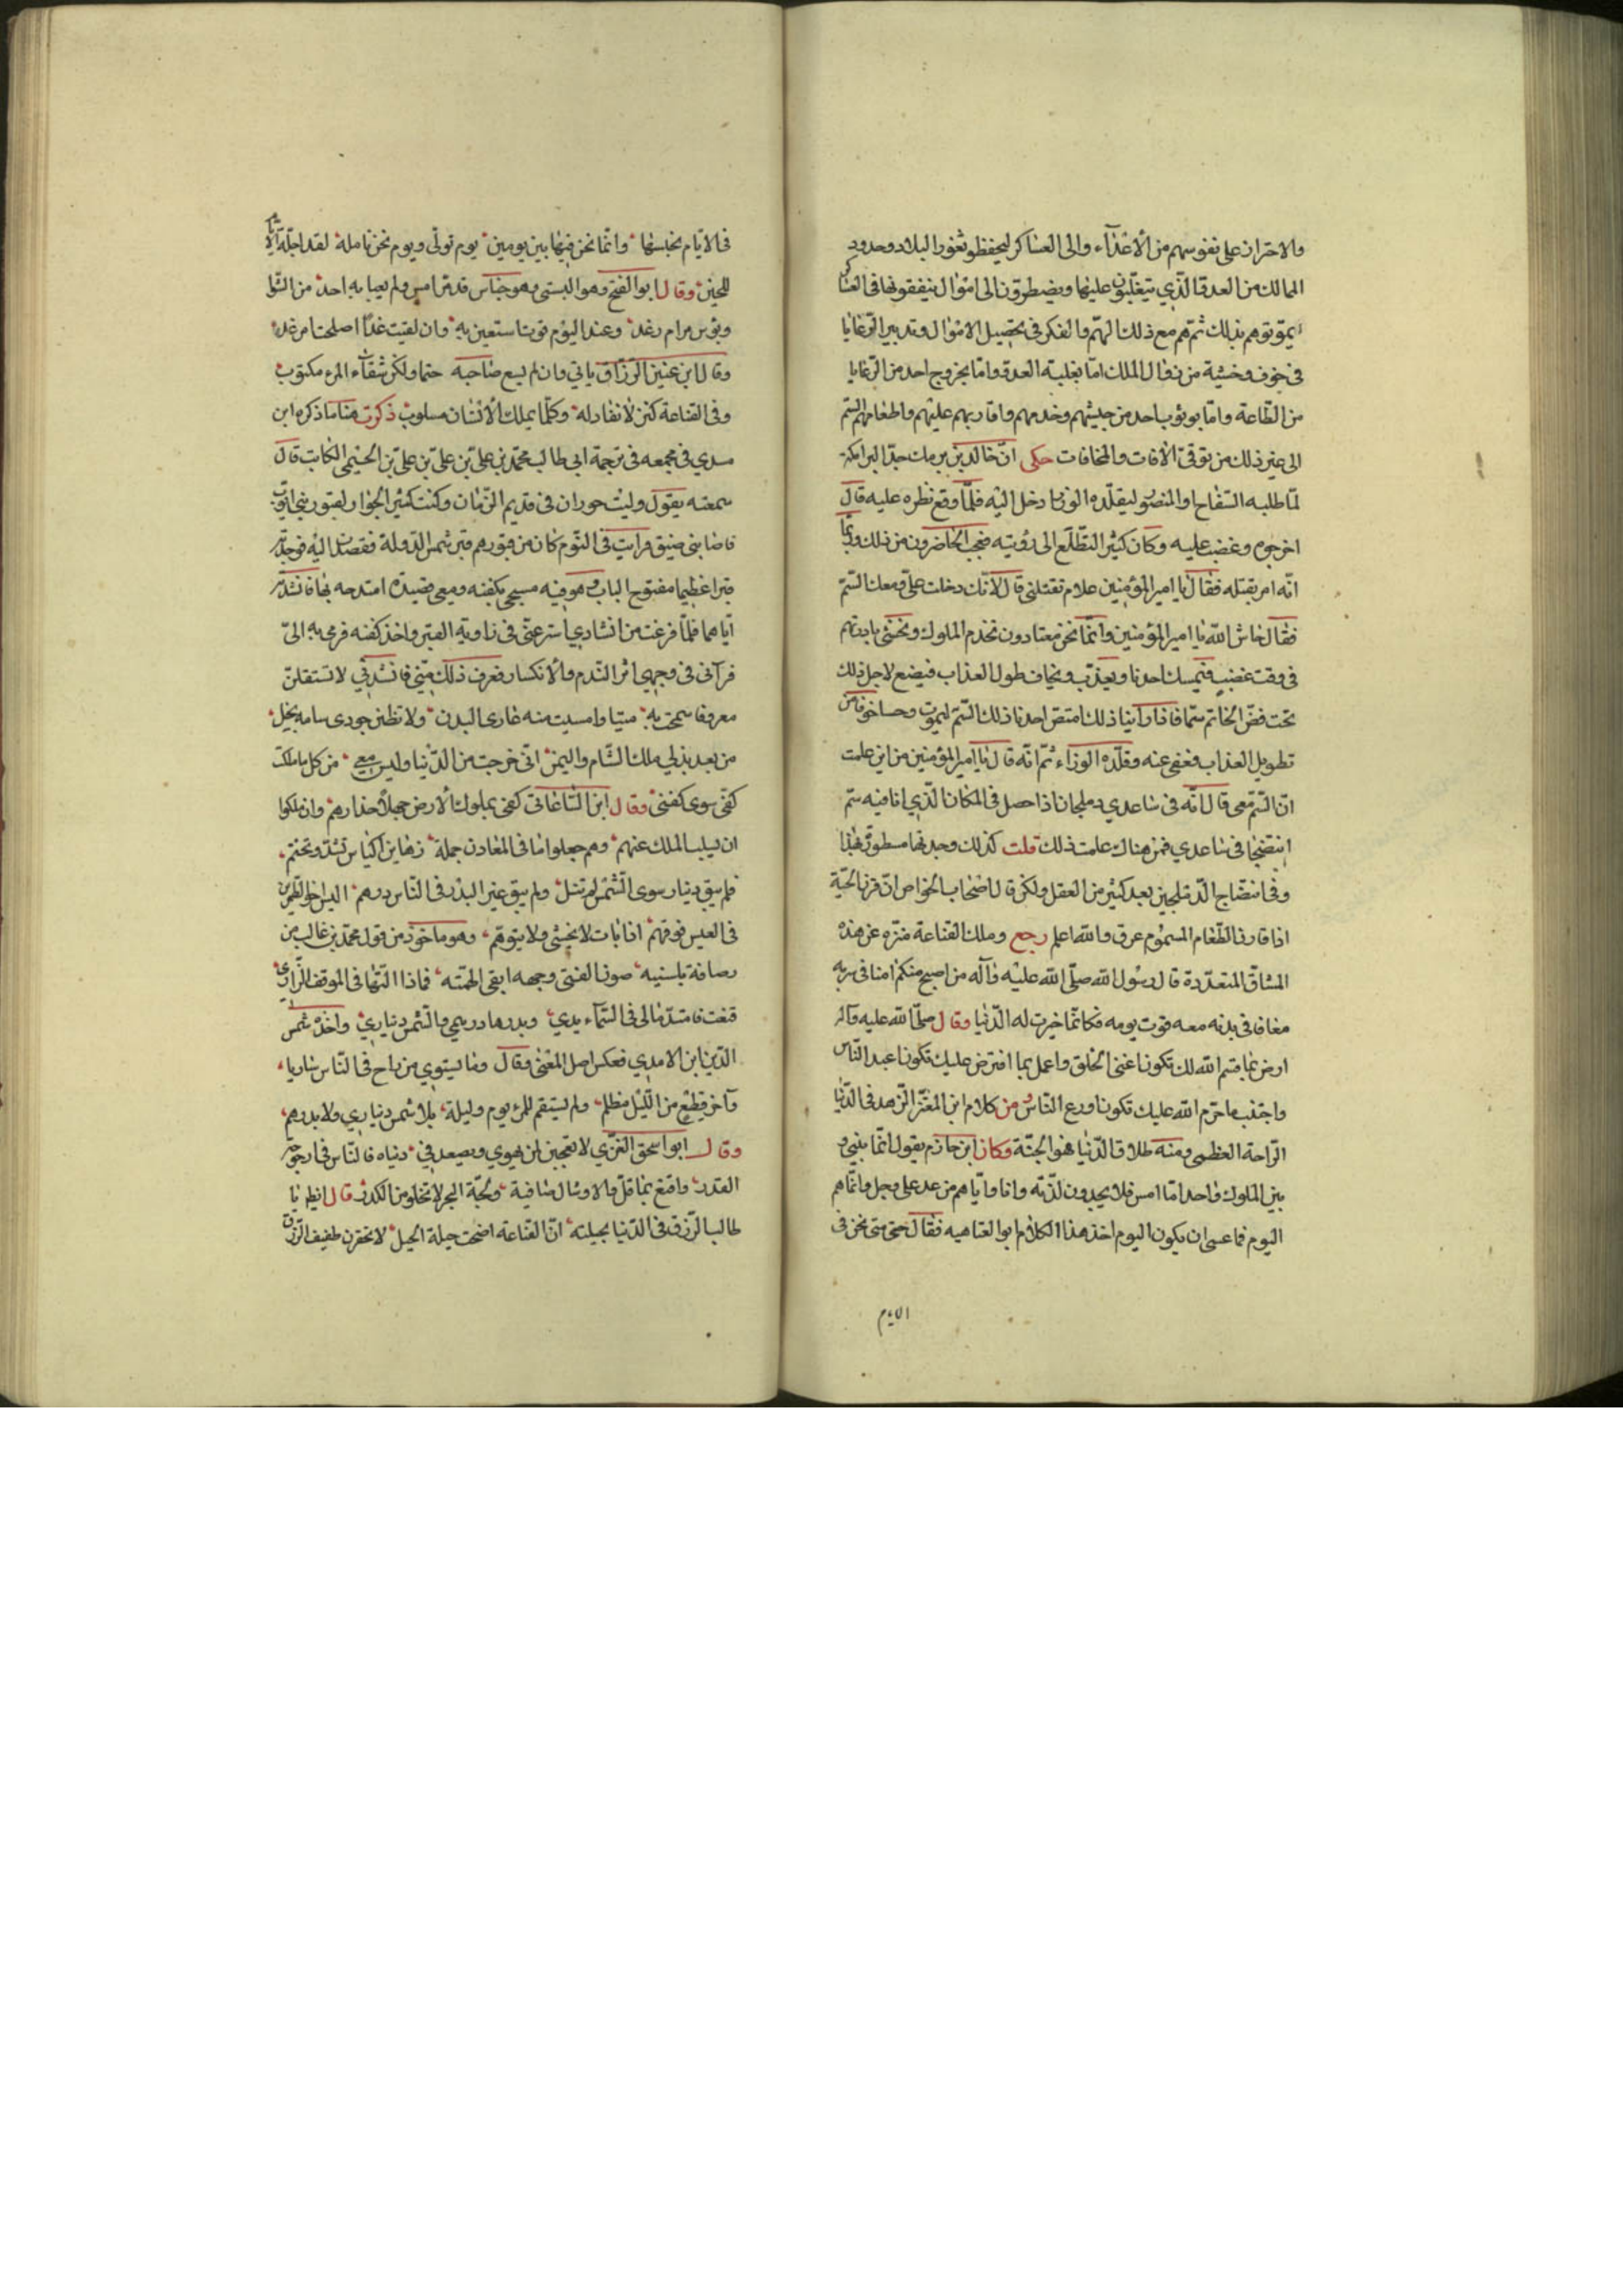 والاحتراز على نفوسهم من الأعداء والى العساكر ليحفظوا ثغور البلاد وحدود
الممالك من العدو الذي يتغلبون عليها ويضطرون الى اموال ينفقونها في العساكر
يموتوهم بذلك ثم هم مع ذلك الهم والفكر في تحصيل الاموال وتدبير الرعايا
في خوف وخشية من زوال الملك اما بغلبة العدو واما بخروج احد من الرعايا
من الطاعة واما بوثوب احد من جيشهم وخدمهم واقاربهم عليهم واطعامهم السم
الى غير ذلك من توقي الآفات والمخافات حكى ان خالد بن برمك جد البرامكة
لما طلبه السفاح او المنصور ليقلده الوزارة دخل اليه فلما وقع نظره عليه قال
اخرجوه وغضب عليه وكان كثير التطلع الى رؤيته فعجب الحاضرون من ذلك وربما
انه امر بقتله فقال يا امير المؤمنين علام تقتلني قال لانك دخلت علي ومعك السم
فقال حاش الله يا امير المؤمنين وانما نحن معتادون نخدم الملوك ونخشى بادرتهم
في وقت غضب فيمسك احدنا ويعذب ويخاف طول العذاب فيضع لاجل ذلك
تحت فص الخاتم سما فاذا رأينا ذلك امتص احدنا ذلك السم ليموت وحسا خوفا من
تطويل العذاب فعفى عنه وقلده الوزاء ثم انه قال يا امير المؤمنين من اين علمت
ان السم معي قال انه في ساعدي دملجان اذا حصل في المكان الذي انا فيه سم
انتضحا في ساعدي فمن هناك علمت ذلك قلت كذلك وجدتها مسطورة هكذا
وفي انتضاح الدملجين بعد كثير من العقل ولكن قال اصحاب الخواص ان قرن الحية
اذا قارن الطعام المسموم عرق والله اعلم رجع وملك القناعة منزه عن هذه
المشاق المتعددة قال رسول الله صلى الله عليه وآله من اصبح منكم امنا في سربه
معافا في بدنه معه قوت يومه فكانما خيرت له الدنيا وقال صلى الله عليه وآله
ارض بما قسم الله لك تكون اغنى الخلق واعمل بما افترض عليك تكون اعبد الناس
واجتنب ما حرم الله عليك تكون اورع الناس ومن كلام ابن المعتز الزهد في الدنيا
الراحة العظمى ومنه طلاق الدنيا هو الجنة وكان ابن حازم يقول انما بيني و
بين الملوك واحد اما امس فلا يجدون لذته وانا واياهم من غد على وجل وانما هو
اليوم فما عسى ان يكون اليوم اخذ هذا الكلام ابو العتاهيه فقال حتى متى نحن في
الايام
في الايام نحسبها وانما نحن فيها بين يومين يوم تولى ويوم نحن نامله لعله اجلب الايام
للحين وقال ابو الفتح وهو البستي وهو جناس قد مر امس ولم يعبا به احد من الثوا
وبؤس مرام رغد وعند اليوم قوت استعين به وان لقيت غدا اصلحت امر غد
وقال ابن عنين الرزاق ياتي وان لم يسع صاحبه حتما ولكن شقاء المرء مكتوب
وفي القناعة كنز لا نفاد له وكلما يملك الانسان مسلوب ذكرت هنا ما ذكره ابن
مسدي في مجمعه في ترجمة ابي طالب محمد بن علي بن علي بن علي بن الخيمي الكاتب قال
سمعته يقول وليت حوران في قديم الزمان وكنت كثير الجوار لقبور بني ايوب
فاصابني ضيق فرايت في النوم كان من قبورهم قبر شمس الدولة فقصدت اليه فوجدته
قبرا عظيما مفتوح الباب وهو فيه مسجى بكفنه ومعي قصيدة امتدحه بها فانشدته
اياها فلما فرغت من انشادي استتر عني في زاوية القبر واخذ كفنه فرمى به الي
فرآني في وجهي اثر الندم والانكسار فعرف ذلك مني فانشدني لا تستقلن
معروفا سمحت به ميتا وامسيت منه عاري البدن ولا تظنن جودي سامه بخل
من بعد بذلي ملك الشام واليمن اني خرجت من الدنيا وليس معي من كل ما ملكت
كفي سوى كفني وقال ابن الساعاتي كفى بملوك الارض جهلا حذارهم وان ملكوا
ان يسلب الملك عنهم وهم جعلوا ما في المعادن جملة رهاين اكياس تشد وتختم
فلم يبق دينار سوى الشمس لم تنل ولم يبق غير البدر في الناس درهم
في العيس فوقهم اذا بات لا يخشى ولا يتوهم وهو ماخوذ من قول محمد بن غالب من
رصافة بلنسيه صون الفتى وجهه ابقى لهمته
قنعت فامتد مالي في السماء يدي وبدرها درهمي والشمس ديناري واخذه شمس
الدين ابن الامدي فعكس اصل المعنى وقال وما يستوي من راح في الناس ساريا
وآخر قطع من الليل مظلم ولم يستقم للمرء يوم وليلة بلا شمس ديناري ولا بدرهم
وقال ابو اسحق الغزي لا تعجبن لمن يهوي ويصعد في دنياه فالناس في ارجوحة
القدر واقنع بما قل فالاوشال صافية ولجة البحر لا تخلو من الكدر قال ايظم يا
طالب الرزق في الدنيا بحيلته ان القناعة اضحت حيلة الحيل لا تحقرن طفيف الرزق